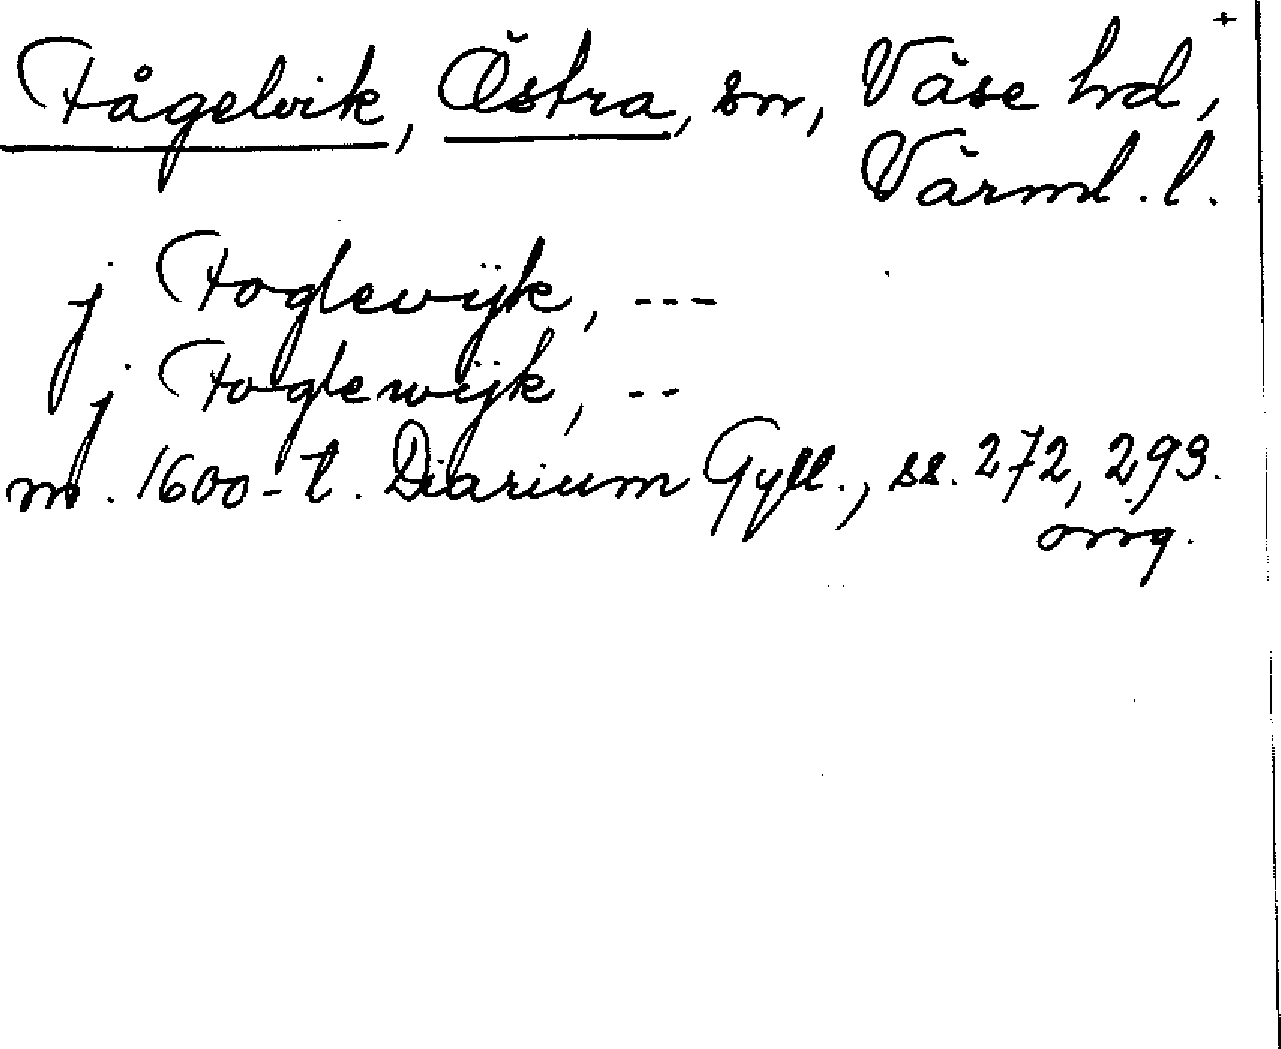 Fågelvik, Östra, sn, Väse hd, +
Värml. l.
j Foglewijk, ---
j Foglewijk, --
m. 1600-t. Diarium Gyll., ss. 272, 293.